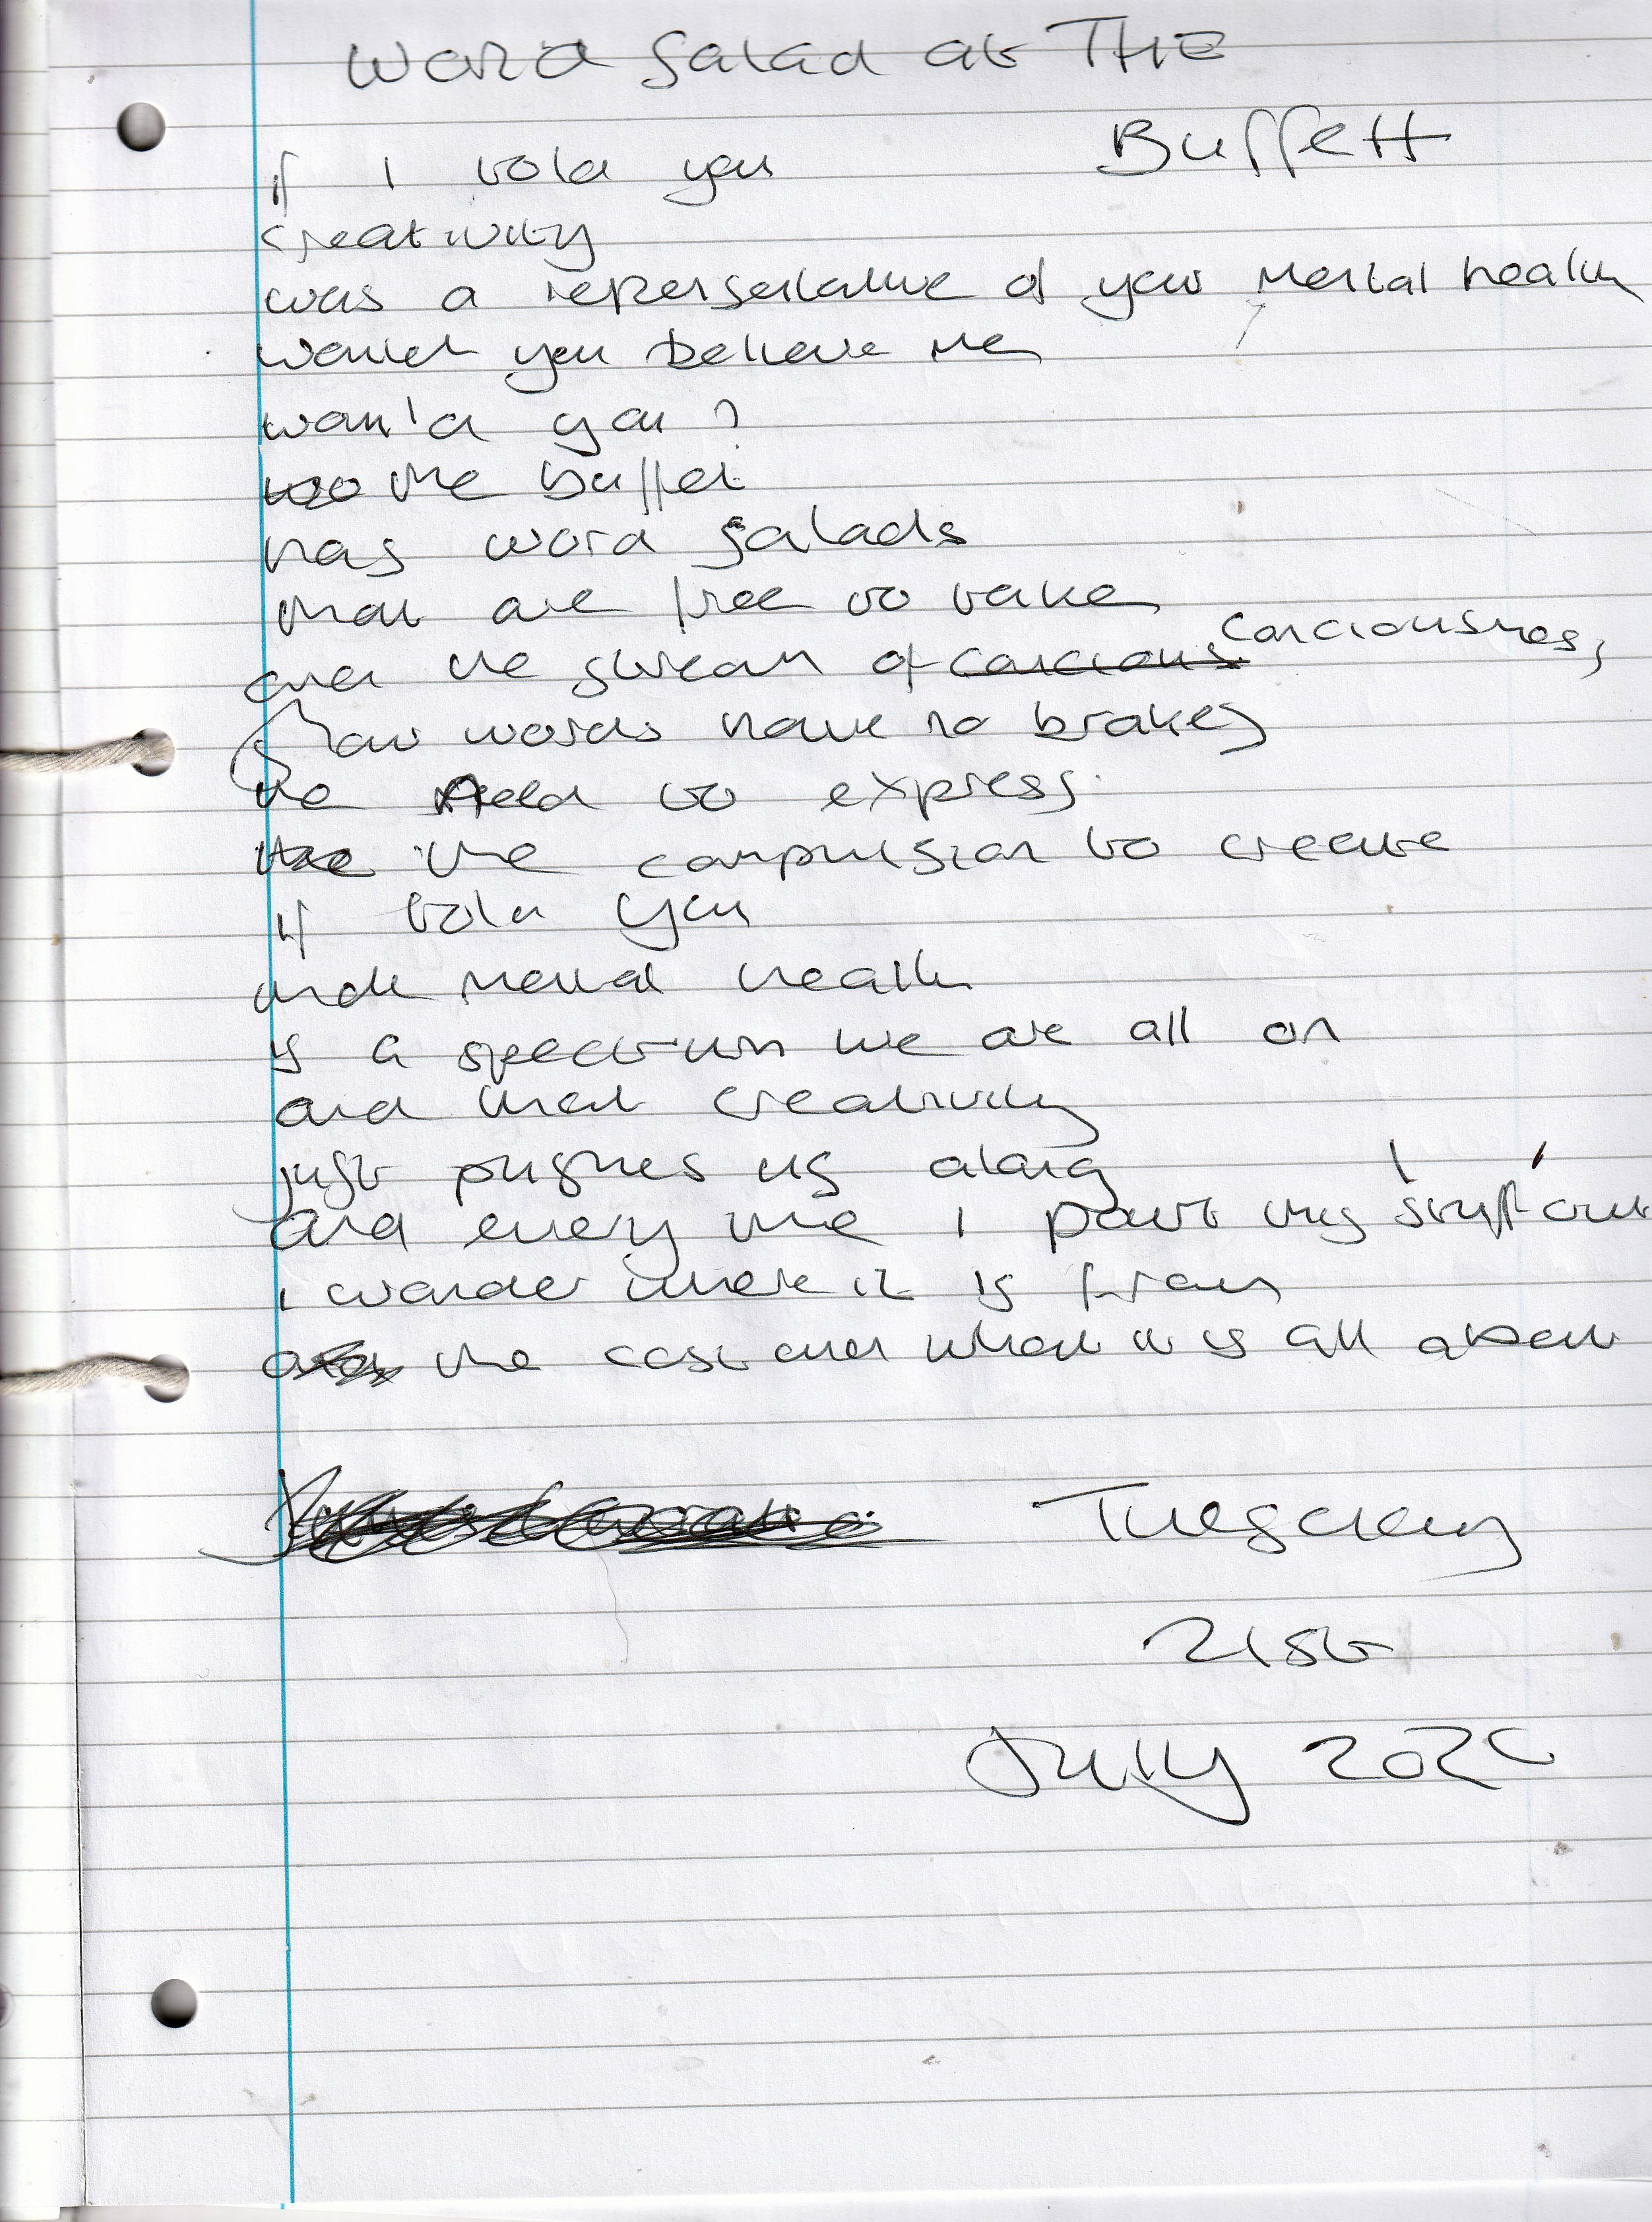 Word Salad at THE
Buffett
if I told you
creativity
was a repersentative of your mental health
would you believe me
woul'd you?
the buffet
has word salads
that are free to take
and the stream of conciousness,
our words have no brakes
the need to express
the compulsion to create
if told you
that mental health
is a spectrum we are all on
and that creativity
just pushes us along
and every time I pour this stuff out
I wonder where it is from
the cost and what it is all about
Tuesday
21st
July 202